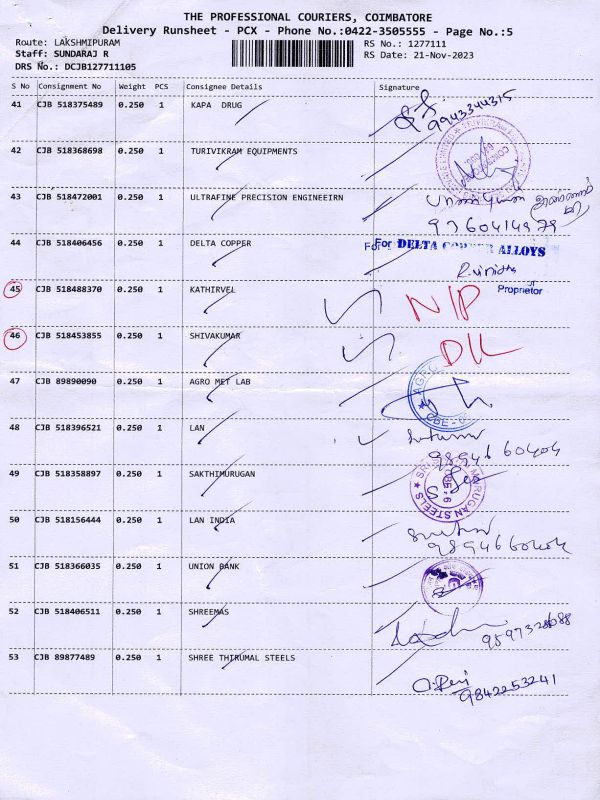 THE PROFESSIONAL COURIERS, COIMBATORE
Delivery Runsheet - PCX - Phone No.:0422-3505555 - Page No.:5
Route: LAKSHMIPURAM
Staff: SUNDARAJ R
DRS No.: DCJB127711105
RS No.: 1277111
RS Date: 21-Nov-2023
S No Consignment No Weight PCS Consignee Details Signature
41 CJB 518375489 0.250 1 KAPA DRUG
9943344315
42 CJB 518368698 0.250 1 TURIVIKRAM EQUIPMENTS
43 CJB 518472001 0.250 1 ULTRAFINE PRECISION ENGINEEIRN
9360414979
44 CJB 518406456 0.250 1 DELTA COPPER
For For DELTA COPPER ALLOYS
Proprietor
45 CJB 518488370 0.250 1 KATHIRVEL
N/P
46 CJB 518453855 0.250 1 SHIVAKUMAR
DL
47 CJB 89890090 0.250 1 AGRO MET LAB
48 CJB 518396521 0.250 1 LAN
98946 60404
49 CJB 518358897 0.250 1 SAKTHIMURUGAN
MURUGAN STEELS
50 CJB 518156444 0.250 1 LAN INDIA
9894660404
51 CJB 518366035 0.250 1 UNION BANK
52 CJB 518406511 0.250 1 SHREEMAS
53 CJB 89877489 0.250 1 SHREE THIRUMAL STEELS
9842253241